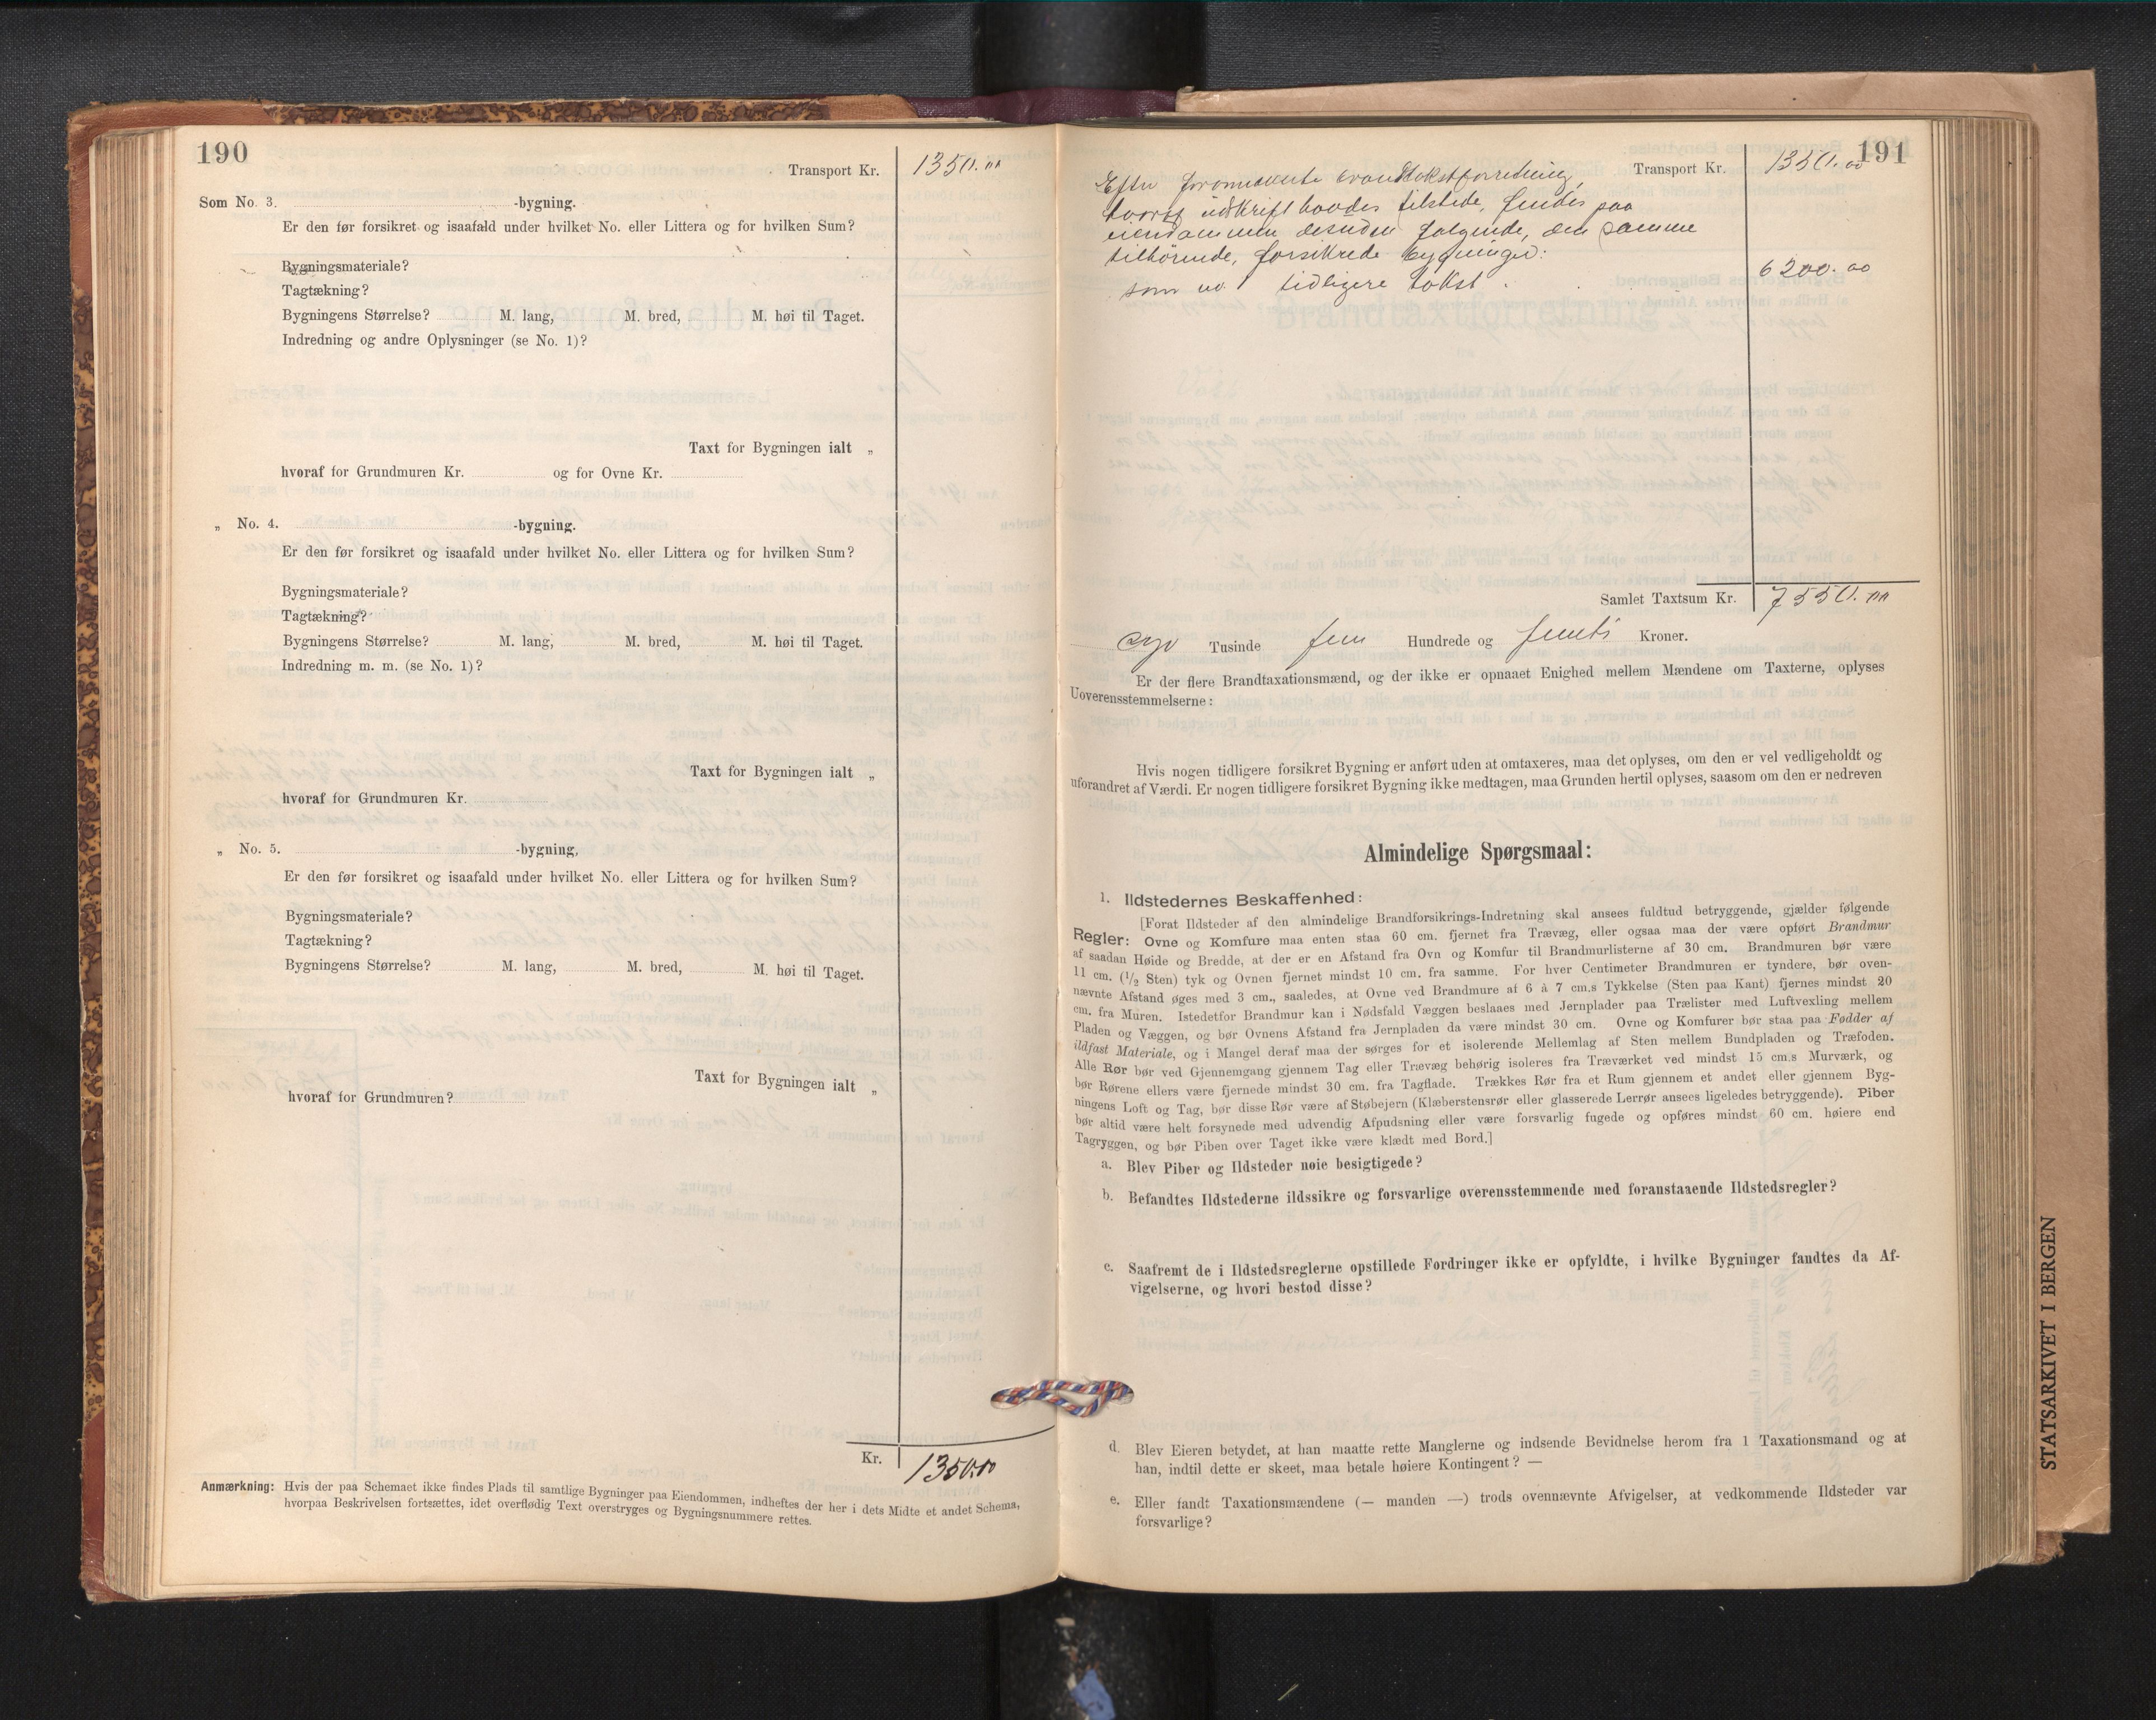 190
Transport Kr. 1350.00
Som No. 3. -bygning.
Er den før forsikret og isaafald under hvilket No. eller Littera og for hvilken Sum?
Bygningsmateriale?
Tagtækning?
Bygningens Størrelse? M. lang, M. bred, M. høi til Taget.
Indredning og andre Oplysninger (se No. 1)?
Taxt for Bygningen ialt „
hvoraf for Grundmuren Kr. og for Ovne Kr.
„ No. 4. -bygning.
Er den før forsikret og isaafald under hvilket No. eller Littera og for hvilken Sum?
Bygningsmateriale?
Tagtækning?
Bygningens Størrelse? M. lang, M. bred, M. høi til Taget.
Indredning m. m. (se No. 1)?
Taxt for Bygningen ialt „
hvoraf for Grundmuren Kr.
„ No. 5. -bygning,
Er den før forsikret og isaafald under hvilket No. eller Littera og for hvilken Sum?
Bygningsmateriale?
Tagtækning?
Bygningens Størrelse? M. lang, M. bred, M. høi til Taget.
Taxt for Bygningen ialt „
hvoraf for Grundmuren?
Kr. 1350.00
Anmærkning: Hvis der paa Schemaet ikke findes Plads til samtlige Bygninger paa Eiendommen, indheftes der her i dets Midte et andet Schema,
hvorpaa Beskrivelsen fortsættes, idet overflødig Text overstryges og Bygningsnummere rettes.
191
Transport Kr. 1350.00
Efter foromskrevne brandtakstforretning,
hvoraf udskrift havdes tilstede, findes paa
eiendommen desuden følgende, den samme
tilhörende, forsikrede bygninger:
som no 1 tidligere takst. 6200.00
Samlet Taxtsum Kr. 7550.00
syv Tusinde fem Hundrede og femti Kroner.
Er der flere Brandtaxationsmænd, og der ikke er opnaaet Enighed mellem Mændene om Taxterne, oplyses
Uoverensstemmelserne:
Hvis nogen tidligere forsikret Bygning er anført uden at omtaxeres, maa det oplyses, om den er vel vedligeholdt og
uforandret af Værdi. Er nogen tidligere forsikret Bygning ikke medtagen, maa Grunden hertil oplyses, saasom om den er nedreven
Almindelige Spørgsmaal:
1. Ildstedernes Beskaffenhed:
[Forat Ildsteder af den almindelige Brandforsikrings-Indretning skal ansees fuldtud betryggende, gjælder følgende
Regler: Ovne og Komfure maa enten staa 60 cm. fjernet fra Trævæg, eller ogsaa maa der være opført Brandmur
af saadan Høide og Bredde, at der er en Afstand fra Ovn og Komfur til Brandmurlisterne af 30 cm. Brandmuren bør være
11 cm. (1/2 Sten) tyk og Ovnen fjernet mindst 10 cm. fra samme. For hver Centimeter Brandmuren er tyndere, bør oven-
nævnte Afstand øges med 3 cm., saaledes, at Ovne ved Brandmure af 6 à 7 cm.s Tykkelse (Sten paa Kant) fjernes mindst 20
cm. fra Muren. Istedetfor Brandmur kan i Nødsfald Væggen beslaaes med Jernplader paa Trælister med Luftvexling mellem
Pladen og Væggen, og bør Ovnens Afstand fra Jernpladen da være mindst 30 cm. Ovne og Komfurer bør staa paa Fødder af
ildfast Materiale, og i Mangel deraf maa der sørges for et isolerende Mellemlag af Sten mellem Bundpladen og Træfoden.
Alle Rør bør ved Gjennemgang gjennem Tag eller Trævæg behørig isoleres fra Træværket ved mindst 15 cm.s Murværk, og
bør Rørene ellers være fjernede mindst 30 cm. fra Tagflade. Trækkes Rør fra et Rum gjennem et andet eller gjennem Byg-
ningens Loft og Tag, bør disse Rør være af Støbejern (Klæberstensrør eller glasserede Lerrør ansees ligeledes betryggende). Piber
bør altid være helt forsynede med udvendig Afpudsning eller være forsvarlig fugede og opføres mindst 60 cm. høiere end
Tagryggen, og bør Piben over Taget ikke være klædt med Bord.]
a. Blev Piber og Ildsteder nøie besigtigede?
b. Befandtes Ildstederne ildssikre og forsvarlige overensstemmende med foranstaaende Ildstedsregler?
c. Saafremt de i Ildstedsreglerne opstillede Fordringer ikke er opfyldte, i hvilke Bygninger fandtes da Af-
vigelserne, og hvori bestod disse?
d. Blev Eieren betydet, at han maatte rette Manglerne og indsende Bevidnelse herom fra 1 Taxationsmand og at
han, indtil dette er skeet, maa betale høiere Kontingent? —
e. Eller fandt Taxationsmændene (— manden —) trods ovennævnte Afvigelser, at vedkommende Ildsteder var
forsvarlige?
STATSARKIVET I BERGEN